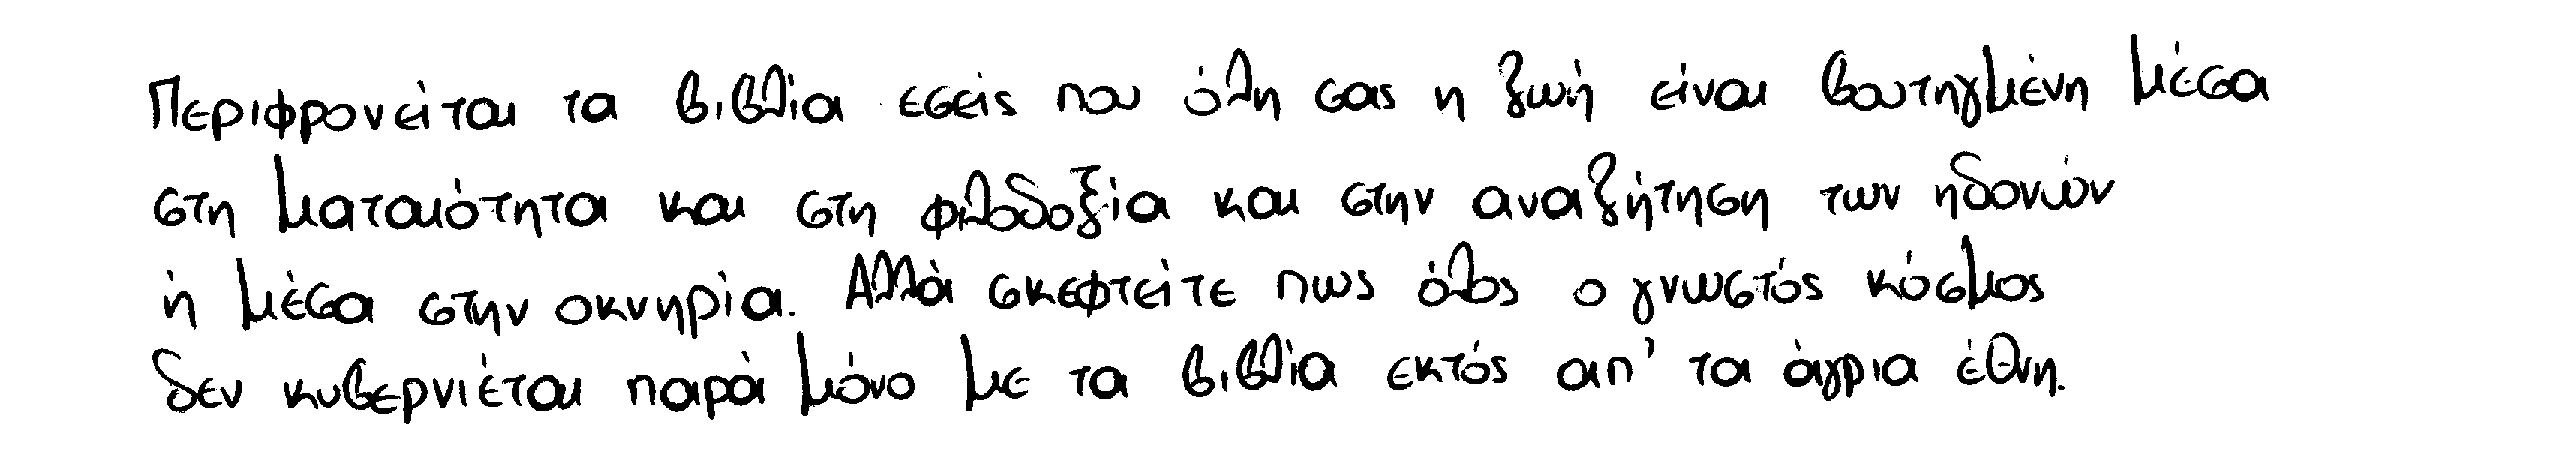 Περιφρονείται τα βιβλία εσείς που όλη σας η ζωή είναι βουτηγμένη μέσα
στη ματαιότητα και στη φιλοδοξία και στην αναζήτηση των ηδονών
ή μέσα στην οκνηρία. Αλλά σκεφτείτε πως όλος ο γνωστός κόσμος
δεν κυβερνιέται παρά μόνο με τα βιβλία εκτός απ' τα άγρια έθνη.